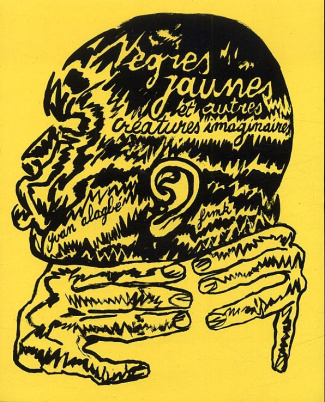 Nègres
jaunes
et autres
créatures imaginaires
yvan alagbé
frmk